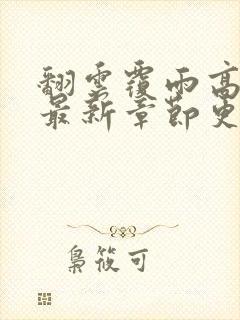 翻雲覆雨高
最新章節更
梟筱可